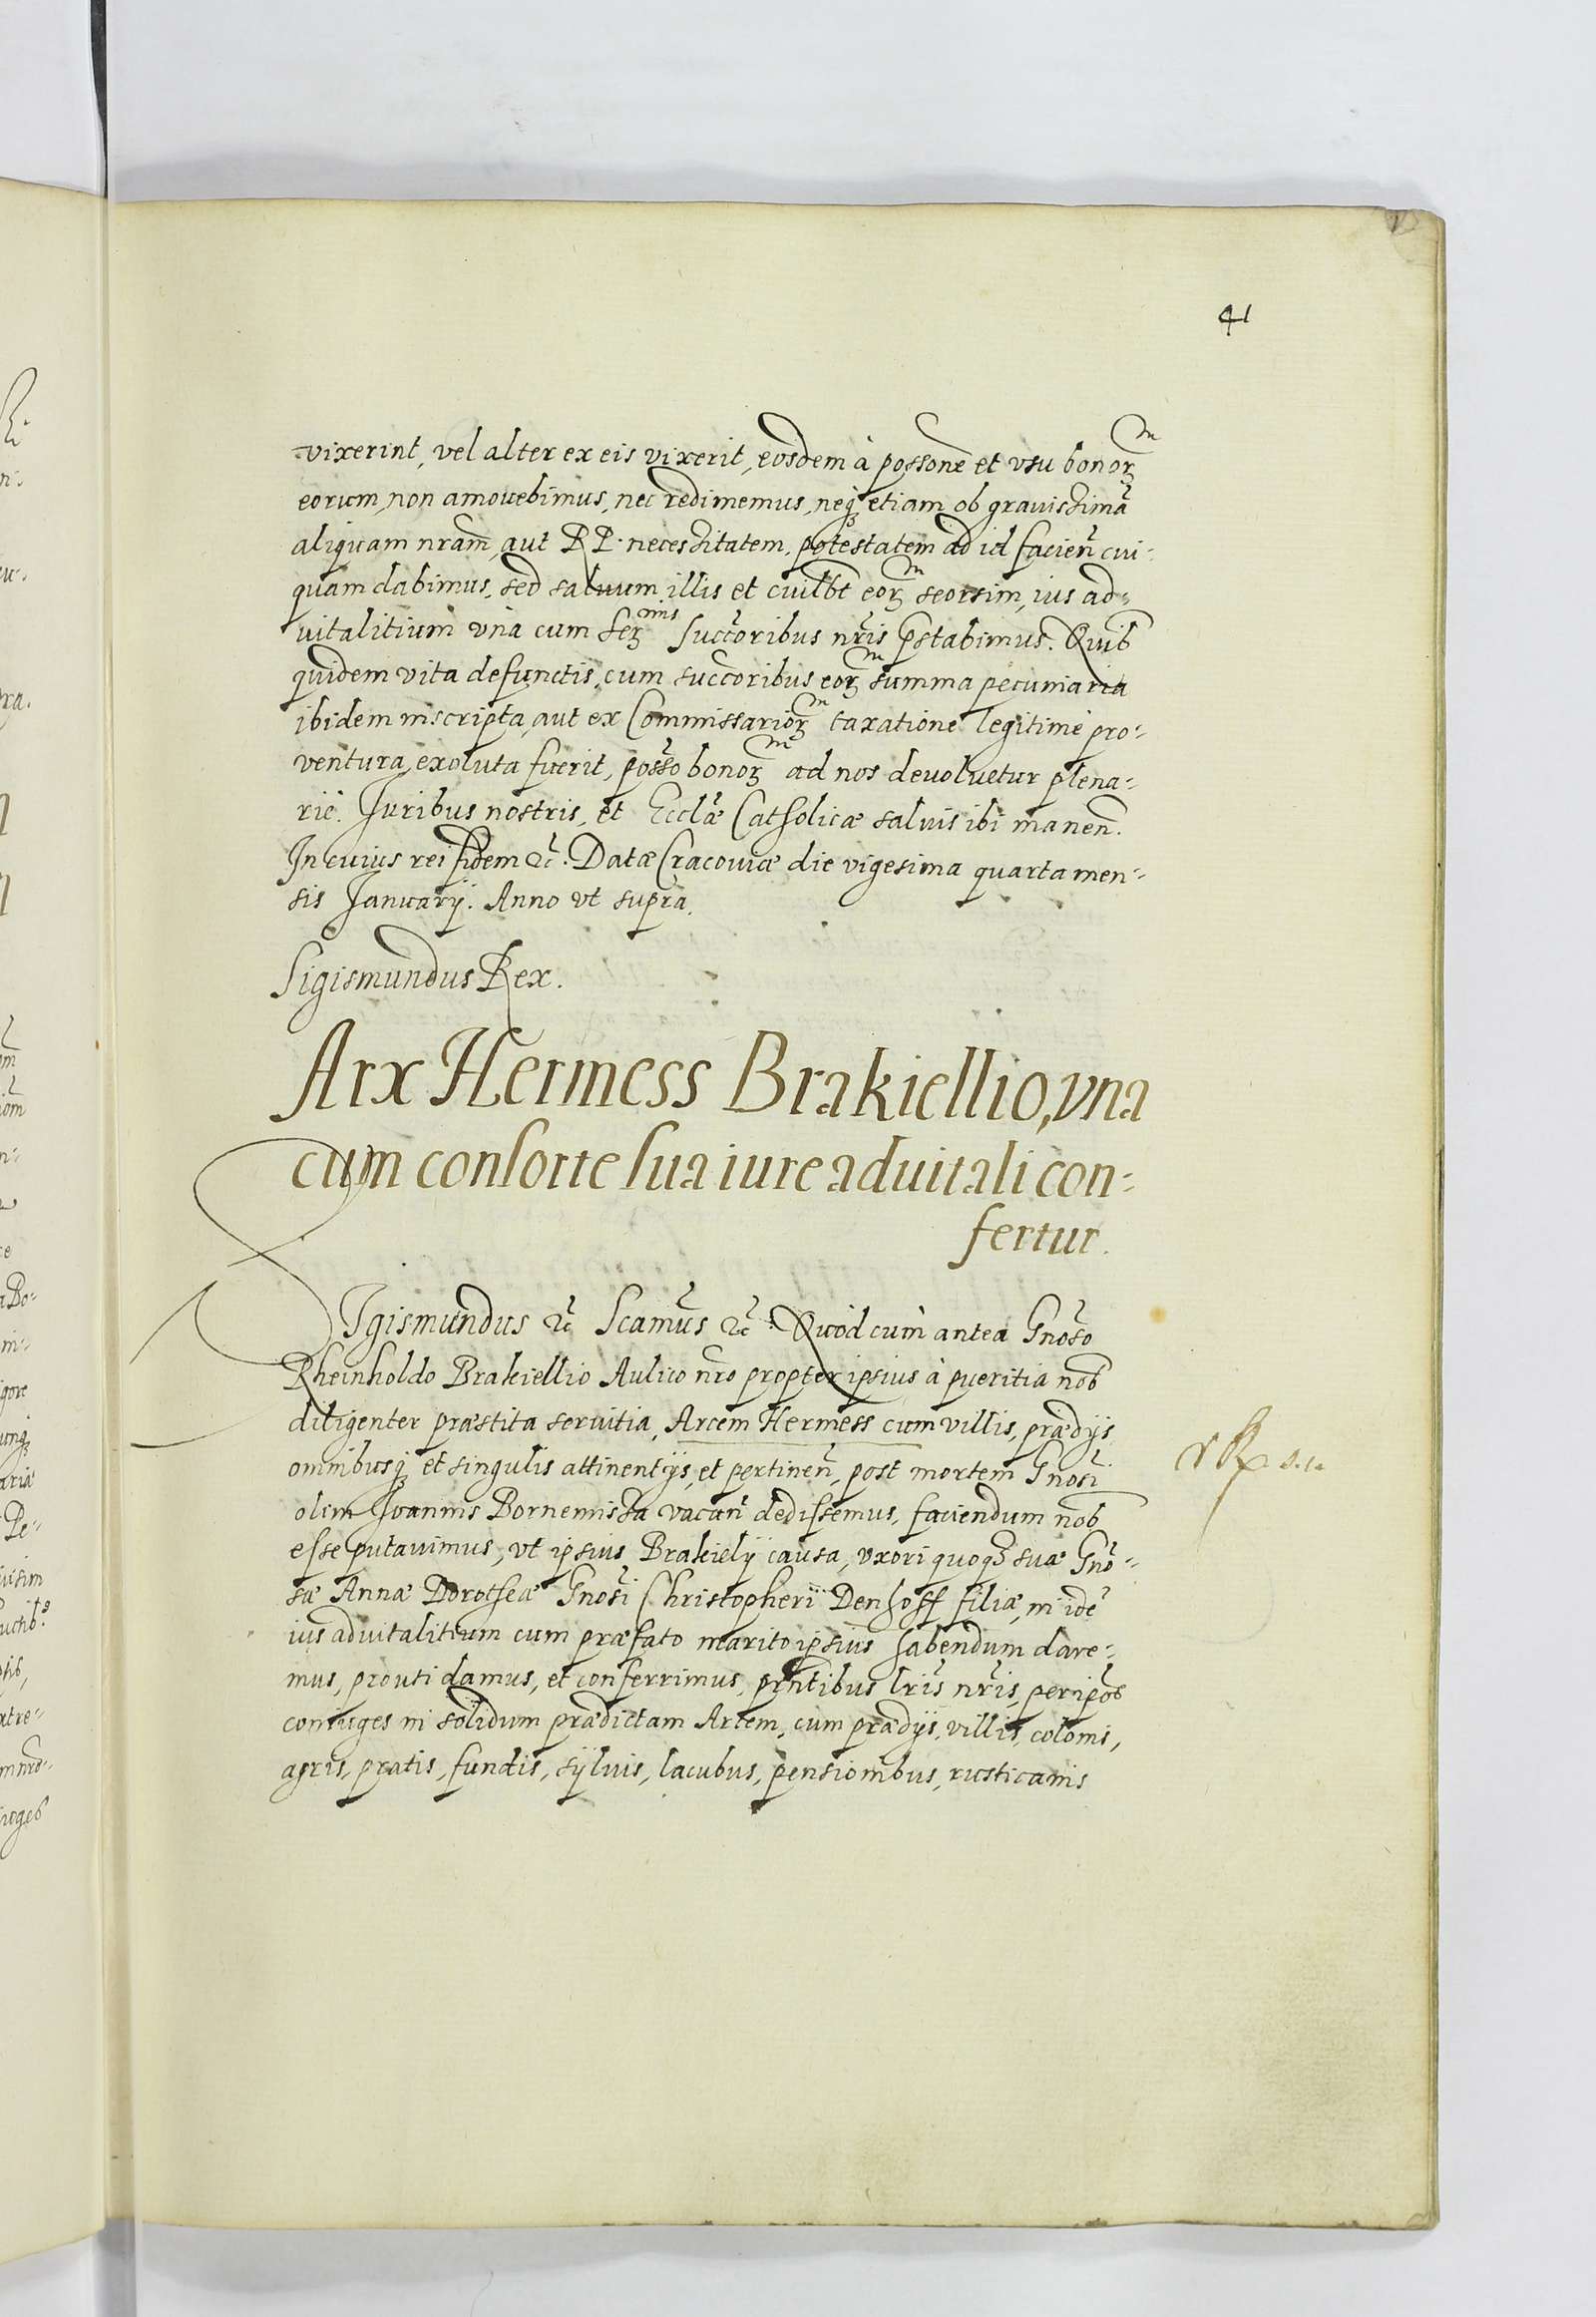 41
vixerint, vel alter ex eis vixerit, eosdem à possone et vsu bonorᵐ
eorum, non amouebimus, nec redimemus, neq₃ etiam ob grauissimã
aliquam nram, aut RP. necessitatem, potestatem ad id facieñ cui-
quam dabimus, sed saluum illis et cuilbt eorᵐ seorsim, ius ad=
uitalitium vnà cum Serᵐⁱˢ succoribus nris pstabimus. Quib
quidem vita defunctis, cum succoribus eorᵐ summa pecuniaria
ibidem inscripta, aut ex Commissariorᵐ taxatione legitime pro-
ventura, exoluta fuerit, posso bonorᵐ ad nos deuoluetur plena-
riè. Juribus nostris, et Ecclæ Catholicæ saluis ibi maneñ.
In cuius rei fidem &c. Datæ Cracouiæ die vigesima quarta men-
sis Januarij. Anno vt supra.
Sigismundus Rex.
Arx Hermess Brakiellio, vna
cum consorte sua iure aduitali con-
fertur.
SIgismundus &c Scamus &c. Quòd cùm antea Gnoso
Rheinholdo Brakiellio Aulico nro propter ipsius à pueritia nob
diligenter præstita seruitia, Arcem Hermess cum villis, prædijs
omnibusq₃ et singulis attinentijs, et pertineñ, post mortem Gnosi
olim Joannis Bornemissa vacañ dedissemus, faciendum nob
esse putauimus, vt ipsius Brakielij causa, vxori quoq₃ suæ Gno-
sæ Annæ Dorotheæ Gnosi Christopheri Denhoff filiæ, in idẽ
ius aduitalitium cum præfato marito ipsius habendum dare-
mus, prouti damus, et conferrimus, pntibus lris nris, per ipos
coniuges in solidum prædictam Arcem, cum prædijs, villis, colonis,
agris, pratis, fundis, syluis, lacubus, pensionibus, rusticanis